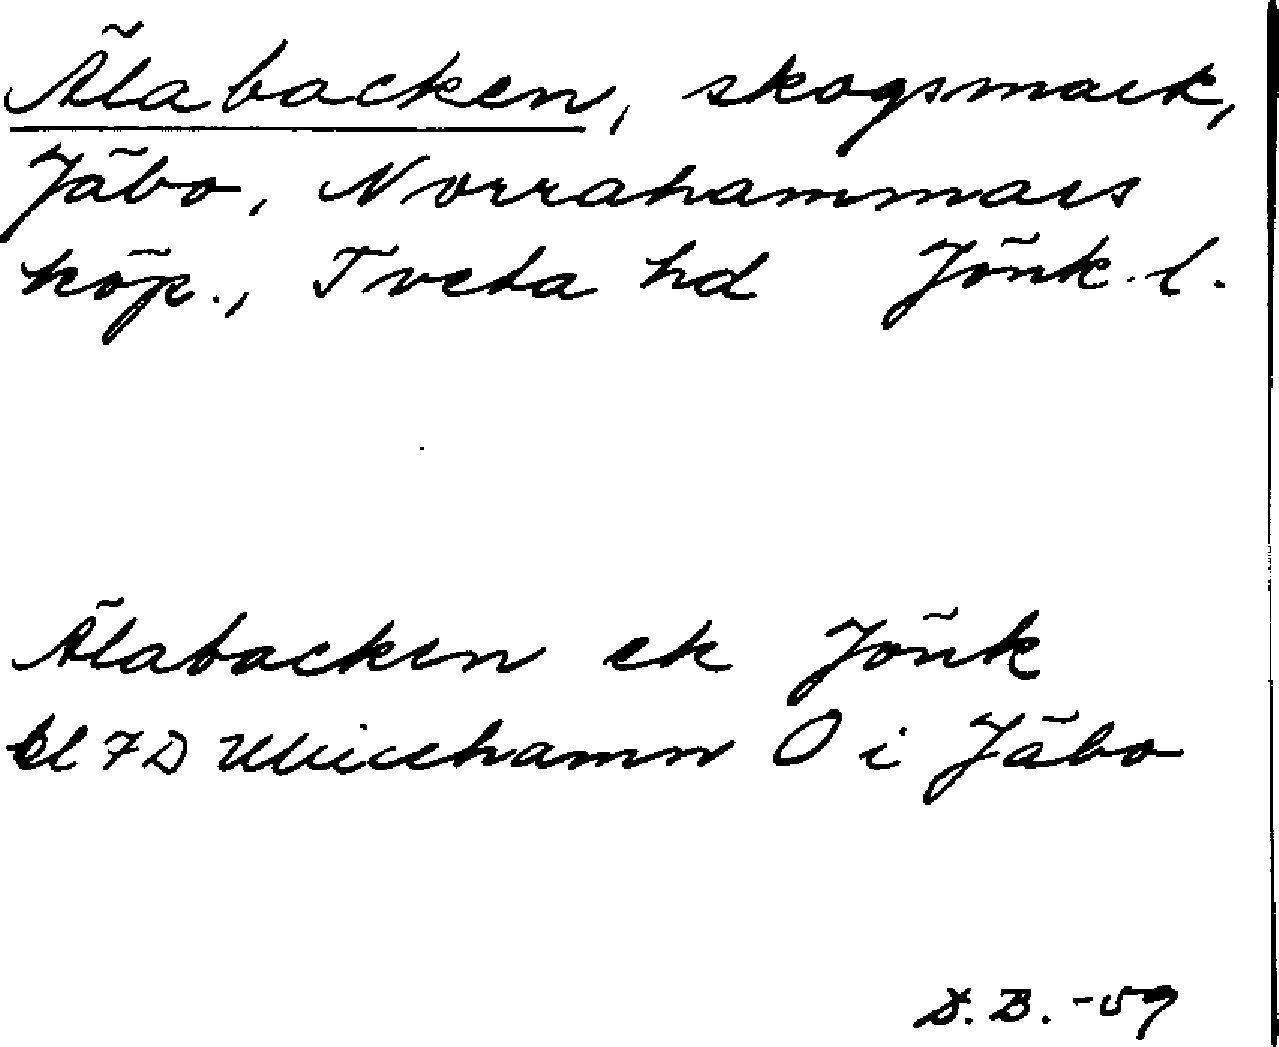 Älabacken, skogsmark,
Jäbo, Norrahammars
köp., Tveta hd Jönk. l.
Älabacken ek Jönk
bl 7D Ulricehamn O i Jäbo
D.B. -59